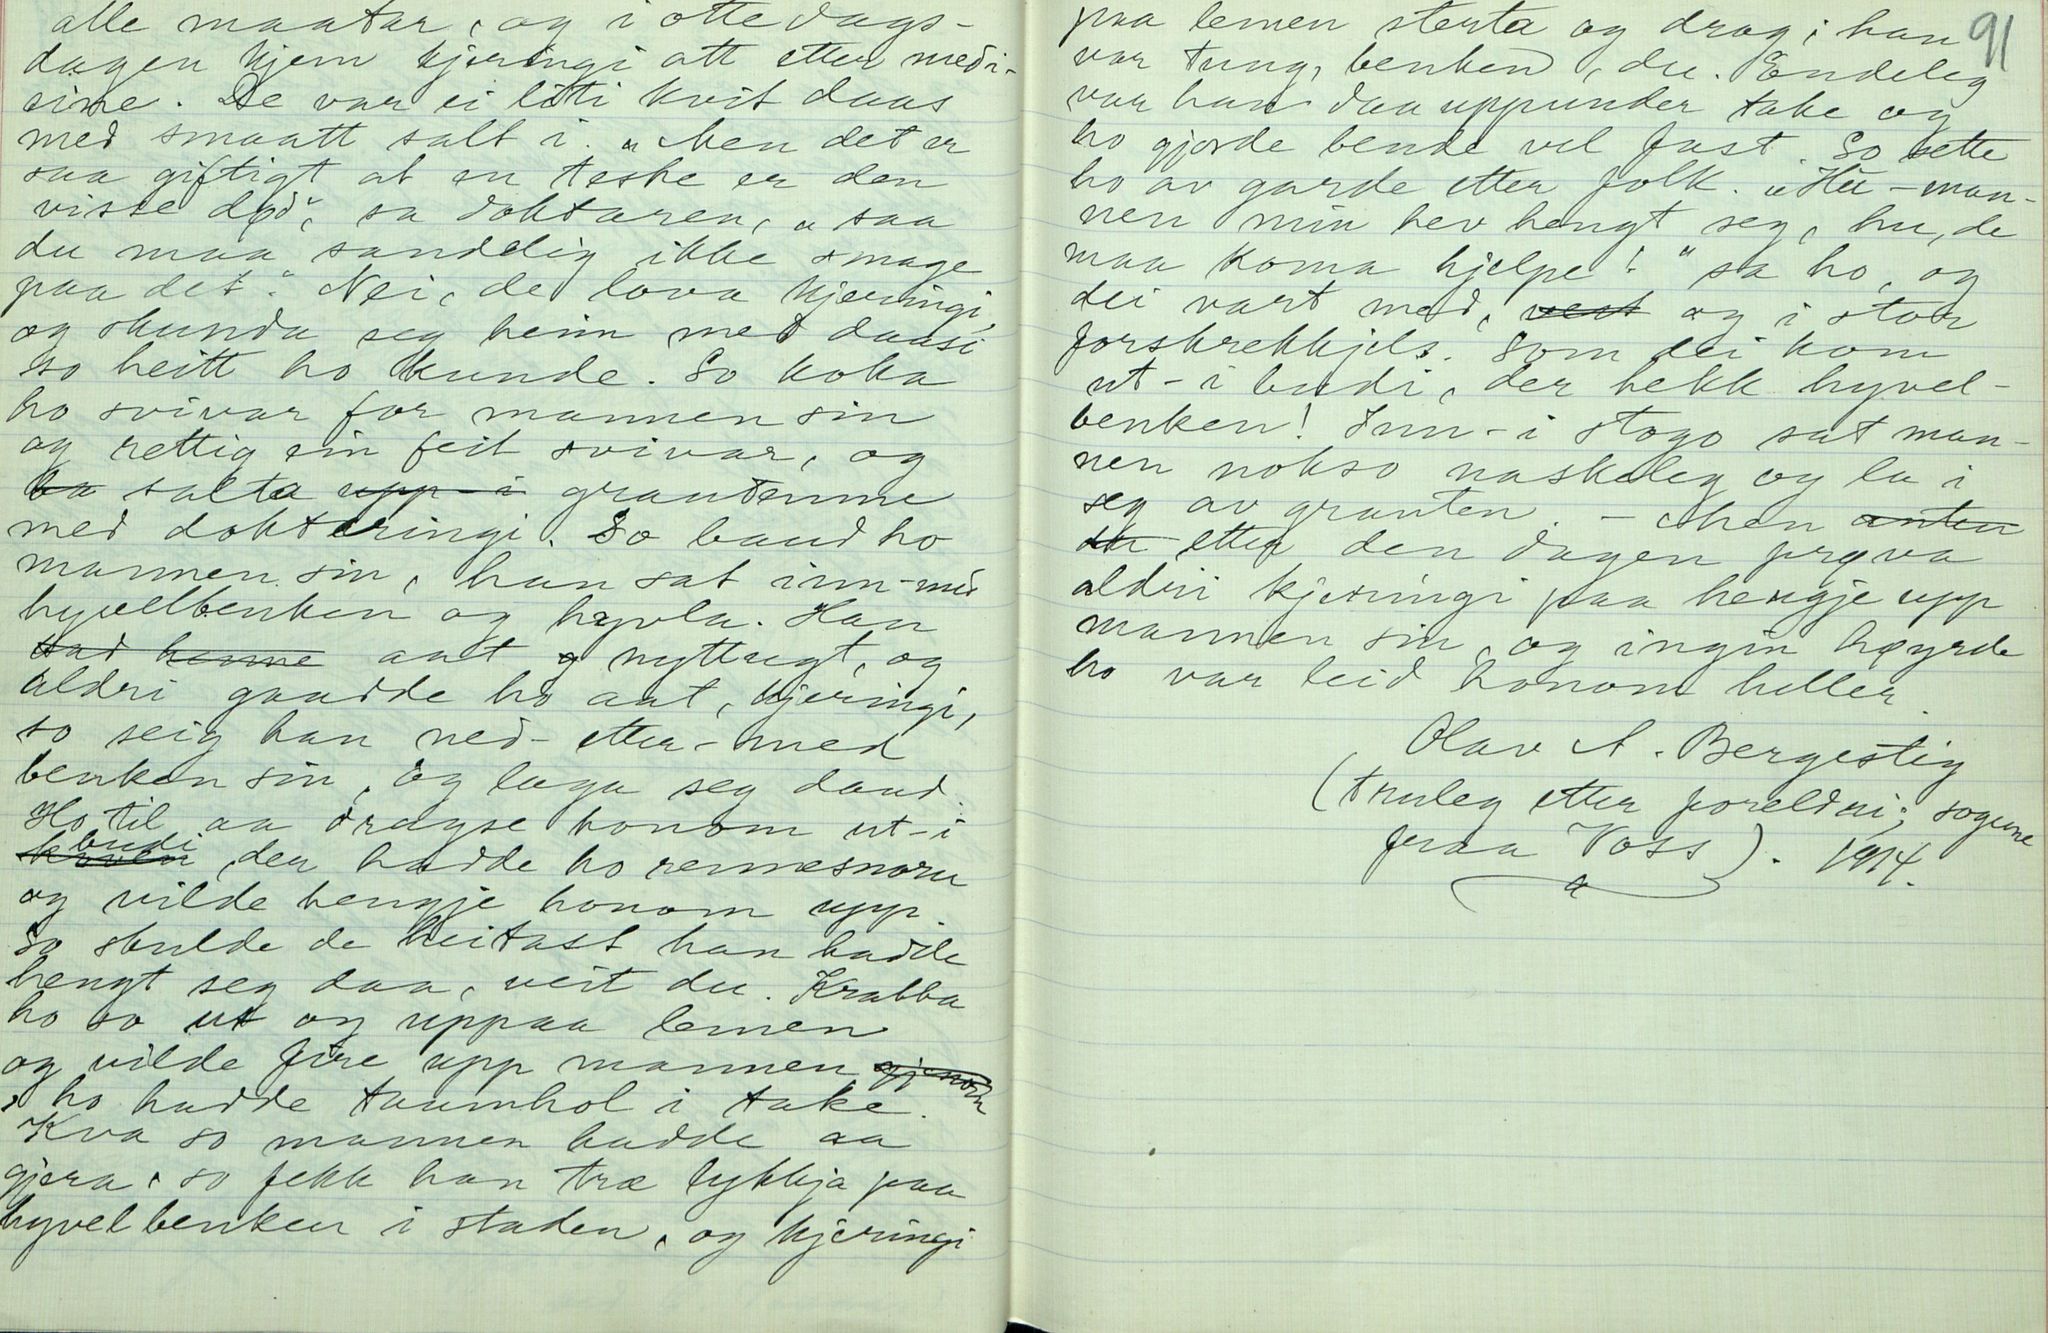 alle maatar, og i otte dags-
dagen kjem kjeringi att etter medi-
sine. De var ei liti kvit daas
med smaatt salt i. „Men det er
saa giftigt at en teske er den
visse død", sa doktaren, „saa
du maa sanddelig ikke smage
paa det." Nei, de lova kjeringi,
og skunda seg heim med daasi
so heitt ho kunde. So koka
ho svivar for mannen sin
og rettig ein feit svivar, og
ha salta upp-i grautenne
med dokteringi. So baud ho
mannen sin, han sat inn-med
hyvelbenken og hyvla. Han
bad henne aat o nyttugt, og
aldri gaadde ho aat, kjeringi,
so seig han ned-etter-med
benken sin, og laga seg daud.
Ho til aa dragse honom ut-i
budi
der hadde ho rennesnoru
og vilde hengje honom upp.
So skulde de heitast han hadde
hengt seg daa, veit du. Krabba
ho so ut og uppaa lemen
og vilde fire upp mannen gjenom
, ho hadde taumhol i take.
Kva so mannen hadde aa
gjera, so fekk han træ lykkja paa
hyvelbenken i staden, og kjeringi
91
paa lemen sterta og drog; han
var tung, benken, du. Endeleg
var han daa uppunder take og
ho gjorde bende vel fast. So sette
ho av garde etter folk. „Hu-man-
nen min hev hengt seg, hu, de
maa koma hjelpe!" sa ho, og
dei vart med, vert og i stor
forskrekkjels. Som dei kom
ut-i budi, der hekk hyvel-
benken! Inn-i stogo sat man-
nen nokso naskeleg og la i
seg av grauten. - Men anten
den etter den dagen prøva
aldri kjeringi paa hengje upp
mannen sin, og ingin høyrde
ho var leid honom heller.
Olav A. Bergestig
(truleg etter foreldri; sogune
fraa Voss). 1914.